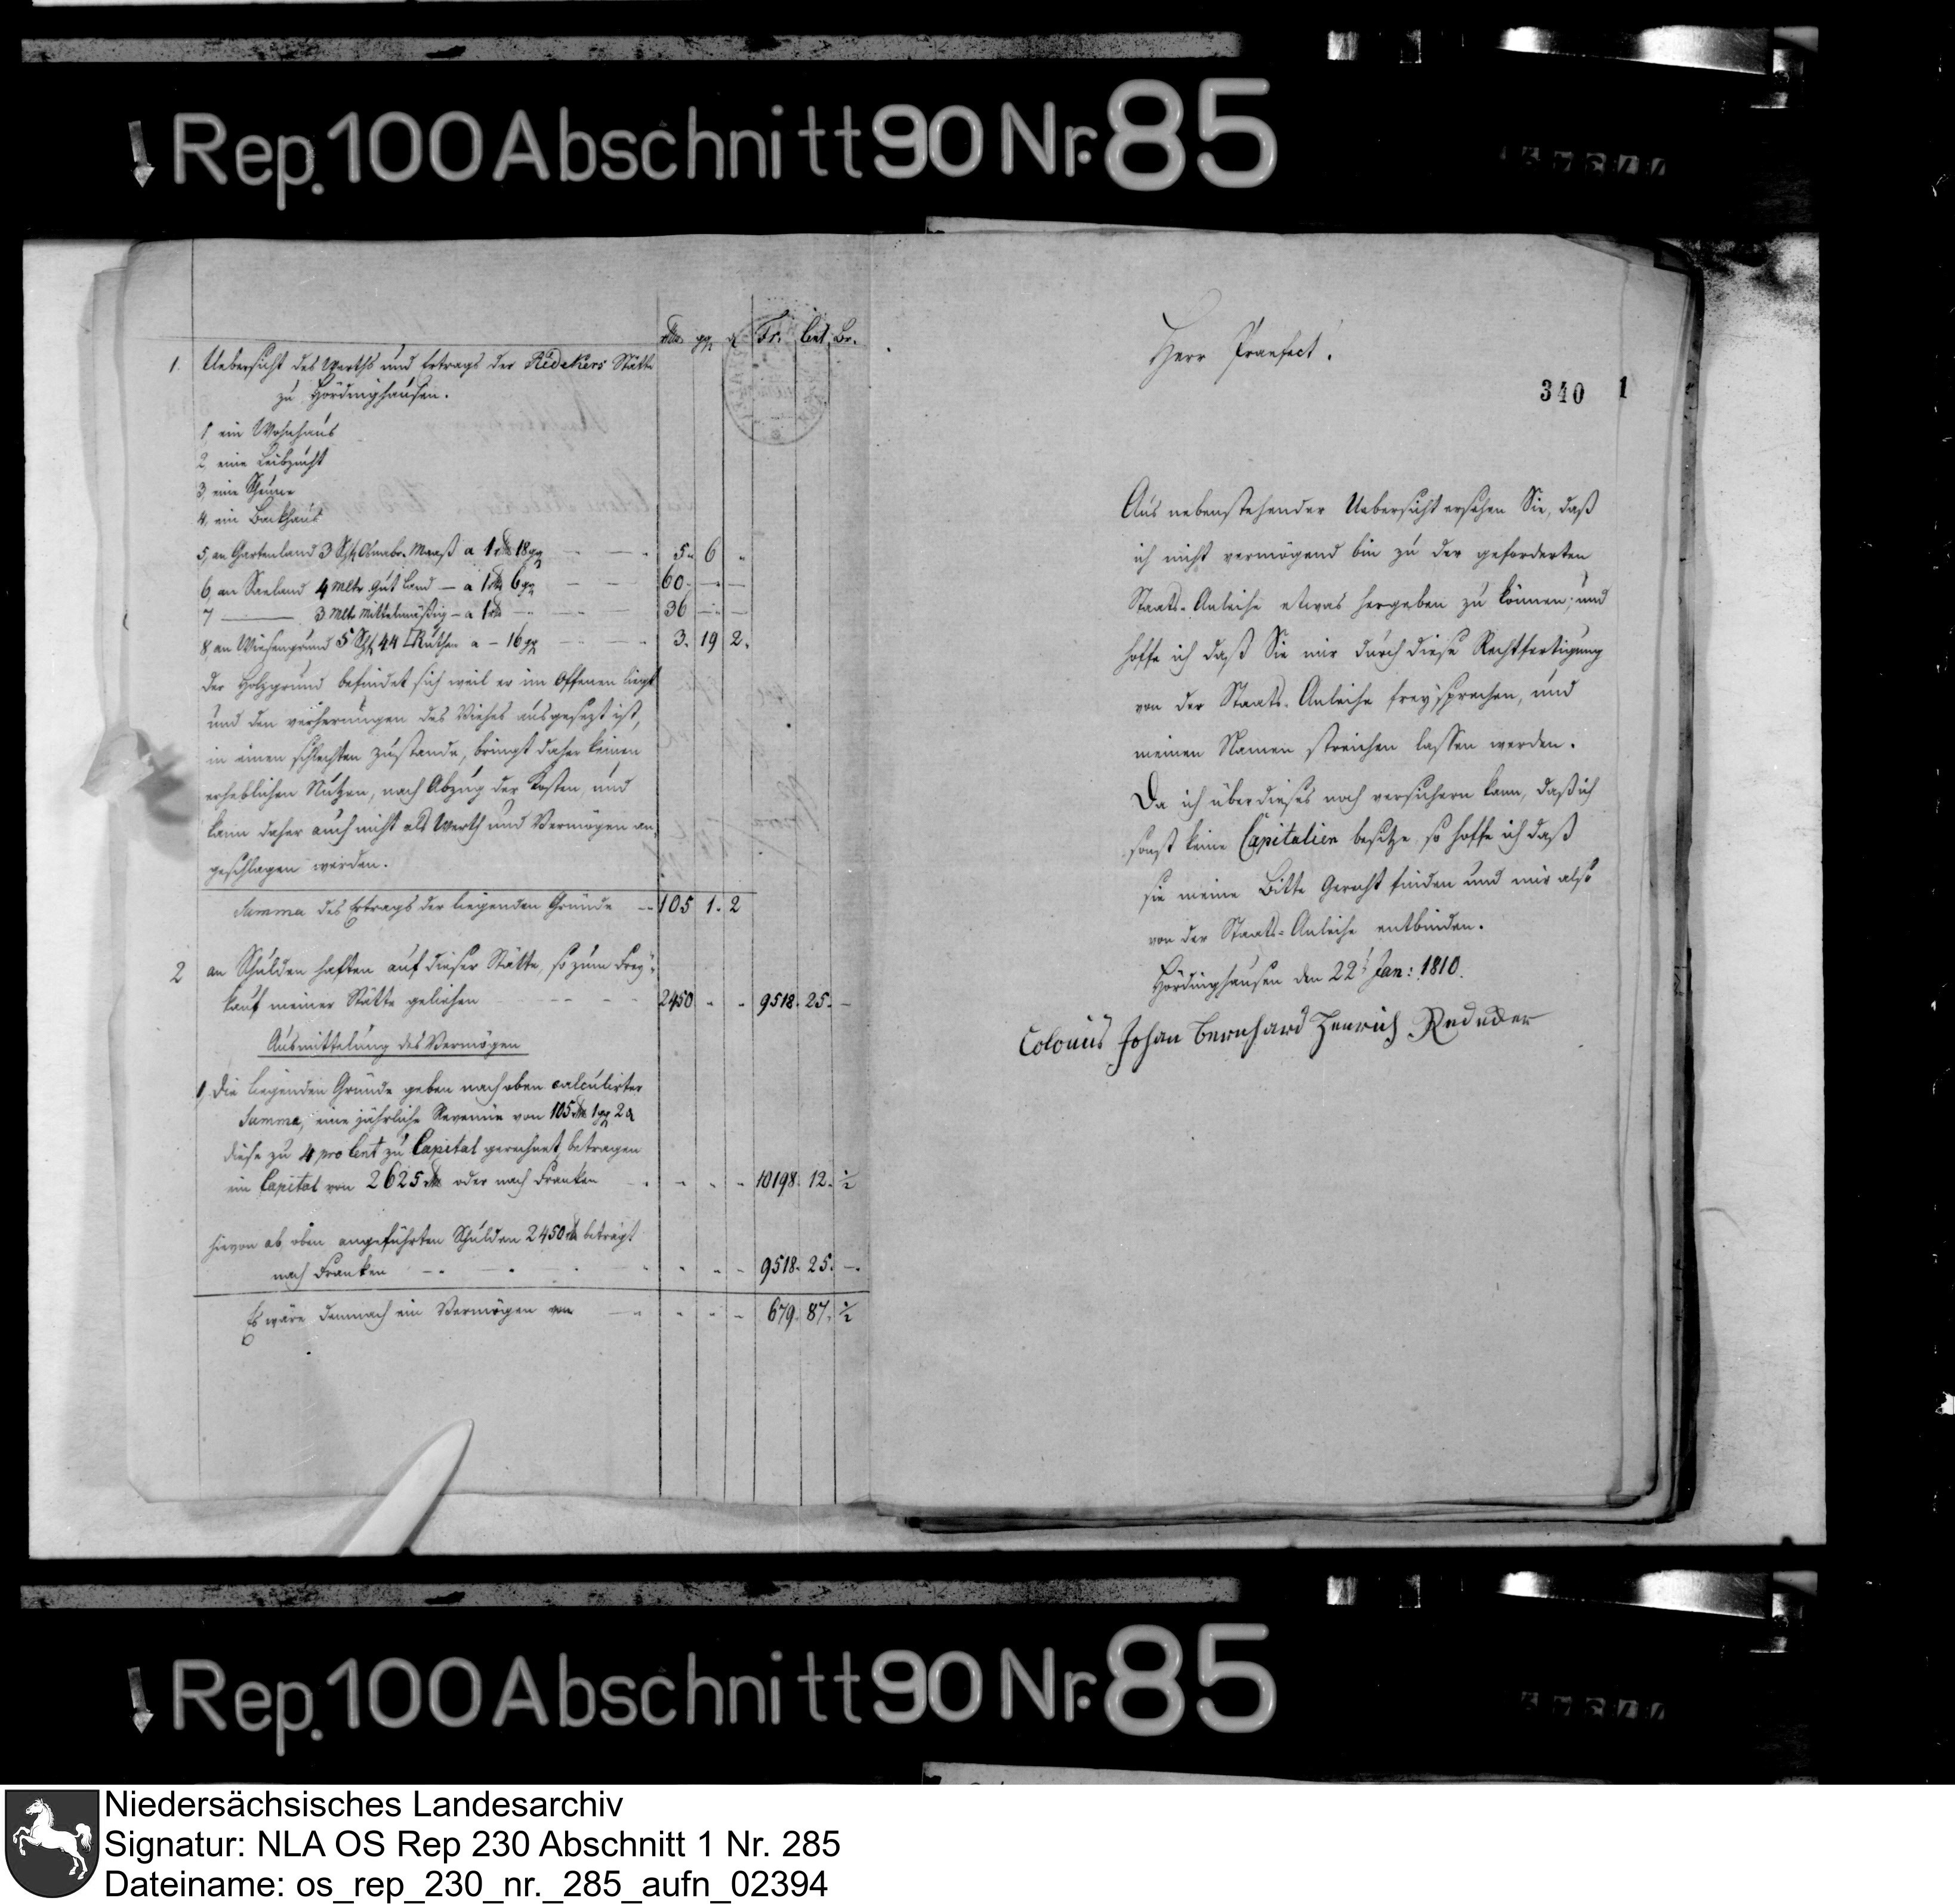 Rep. 100 Abschnitt 90 Nr. 85
rthr ggr d Fr. Cent. Br.
1. Uebersicht des Werths und Ertrags der Redekers Stätte
zu Hördinghausen.
1, ein Wohnhaus
2, eine Leibzucht
3, eine Scheune
4, ein Backhaus
5, an Gartenland 3 Schfl Osnabr. Maaß a 1 rthr 18 ggr 5 " 6 "
6, an Saeland 4 Mltr. gut Land — a 1 rthr 6 ggr 60 — —
7 — 3 Mltr Mittelmäßig — a 1 rthr 36 — —
8, an Wiesengrund 5 Schfl 44 □Ruthen a — 16 ggr 3. 19 2.
der Holzgrund befindet sich weil er im Offenen liegt
und den verheerungen des Viehes ausgesezt ist,
in einen schlechten zustande, bringt daher keinen
erheblichen Nutzen, nach Abzug der Kosten, und
kann daher auch nicht als Werth und Vermögen an-
geschlagen werden.
Summa des Ertrags der liegenden Gründe — 105 1. 2
2 an Schulden haften auf dieser Stätte, so zum Frey-
kauf meiner Stätte geliehen 2450 - - 9518. 25. —
Ausmittelung des Vermögen
1, Die liegenden Gründe geben nach oben calculirter
Summa, eine jährliche Revenüe von 105 rthr 1 ggr 2 d
diese zu 4 pro Cent zu Capital gerechnet, betragen
ein Capital von 2625 rthr oder nach Franken - - - 10198. 12. ½
hievon ab oben angeführten Schulden 2450 rthr beträgt
nach Franken - - - 9518. 25. —.
Es wäre demnach ein Vermögen von - - - 679. 87. ½
Herr Praefect!
340 1
Aus nebenstehender Uebersicht ersehen Sie, daß
ich nicht vermögend bin zu der geforderten
Staats-Anleihe etwas hergeben zu können; und
hoffe ich daß Sie mir durch diese Rechtfertigung
von der Staats-Anleihe freysprechen, und
meinen Namen streichen lassen werden.
Da ich überdieses noch versichern kann, daß ich
sonst keine Capitalien besitze, so hoffe ich daß
sie meine Bitte Gerecht finden und mir also
von der Staats-Anleihe entbinden.
Hördinghausen den 22t Jan: 1810.
Colonus Johan Bernhard Henrich Redecker
Rep. 100 Abschnitt 90 Nr. 85
Niedersächsisches Landesarchiv
Signatur: NLA OS Rep 230 Abschnitt 1 Nr. 285
Dateiname: os_rep_230_nr._285_aufn_02394